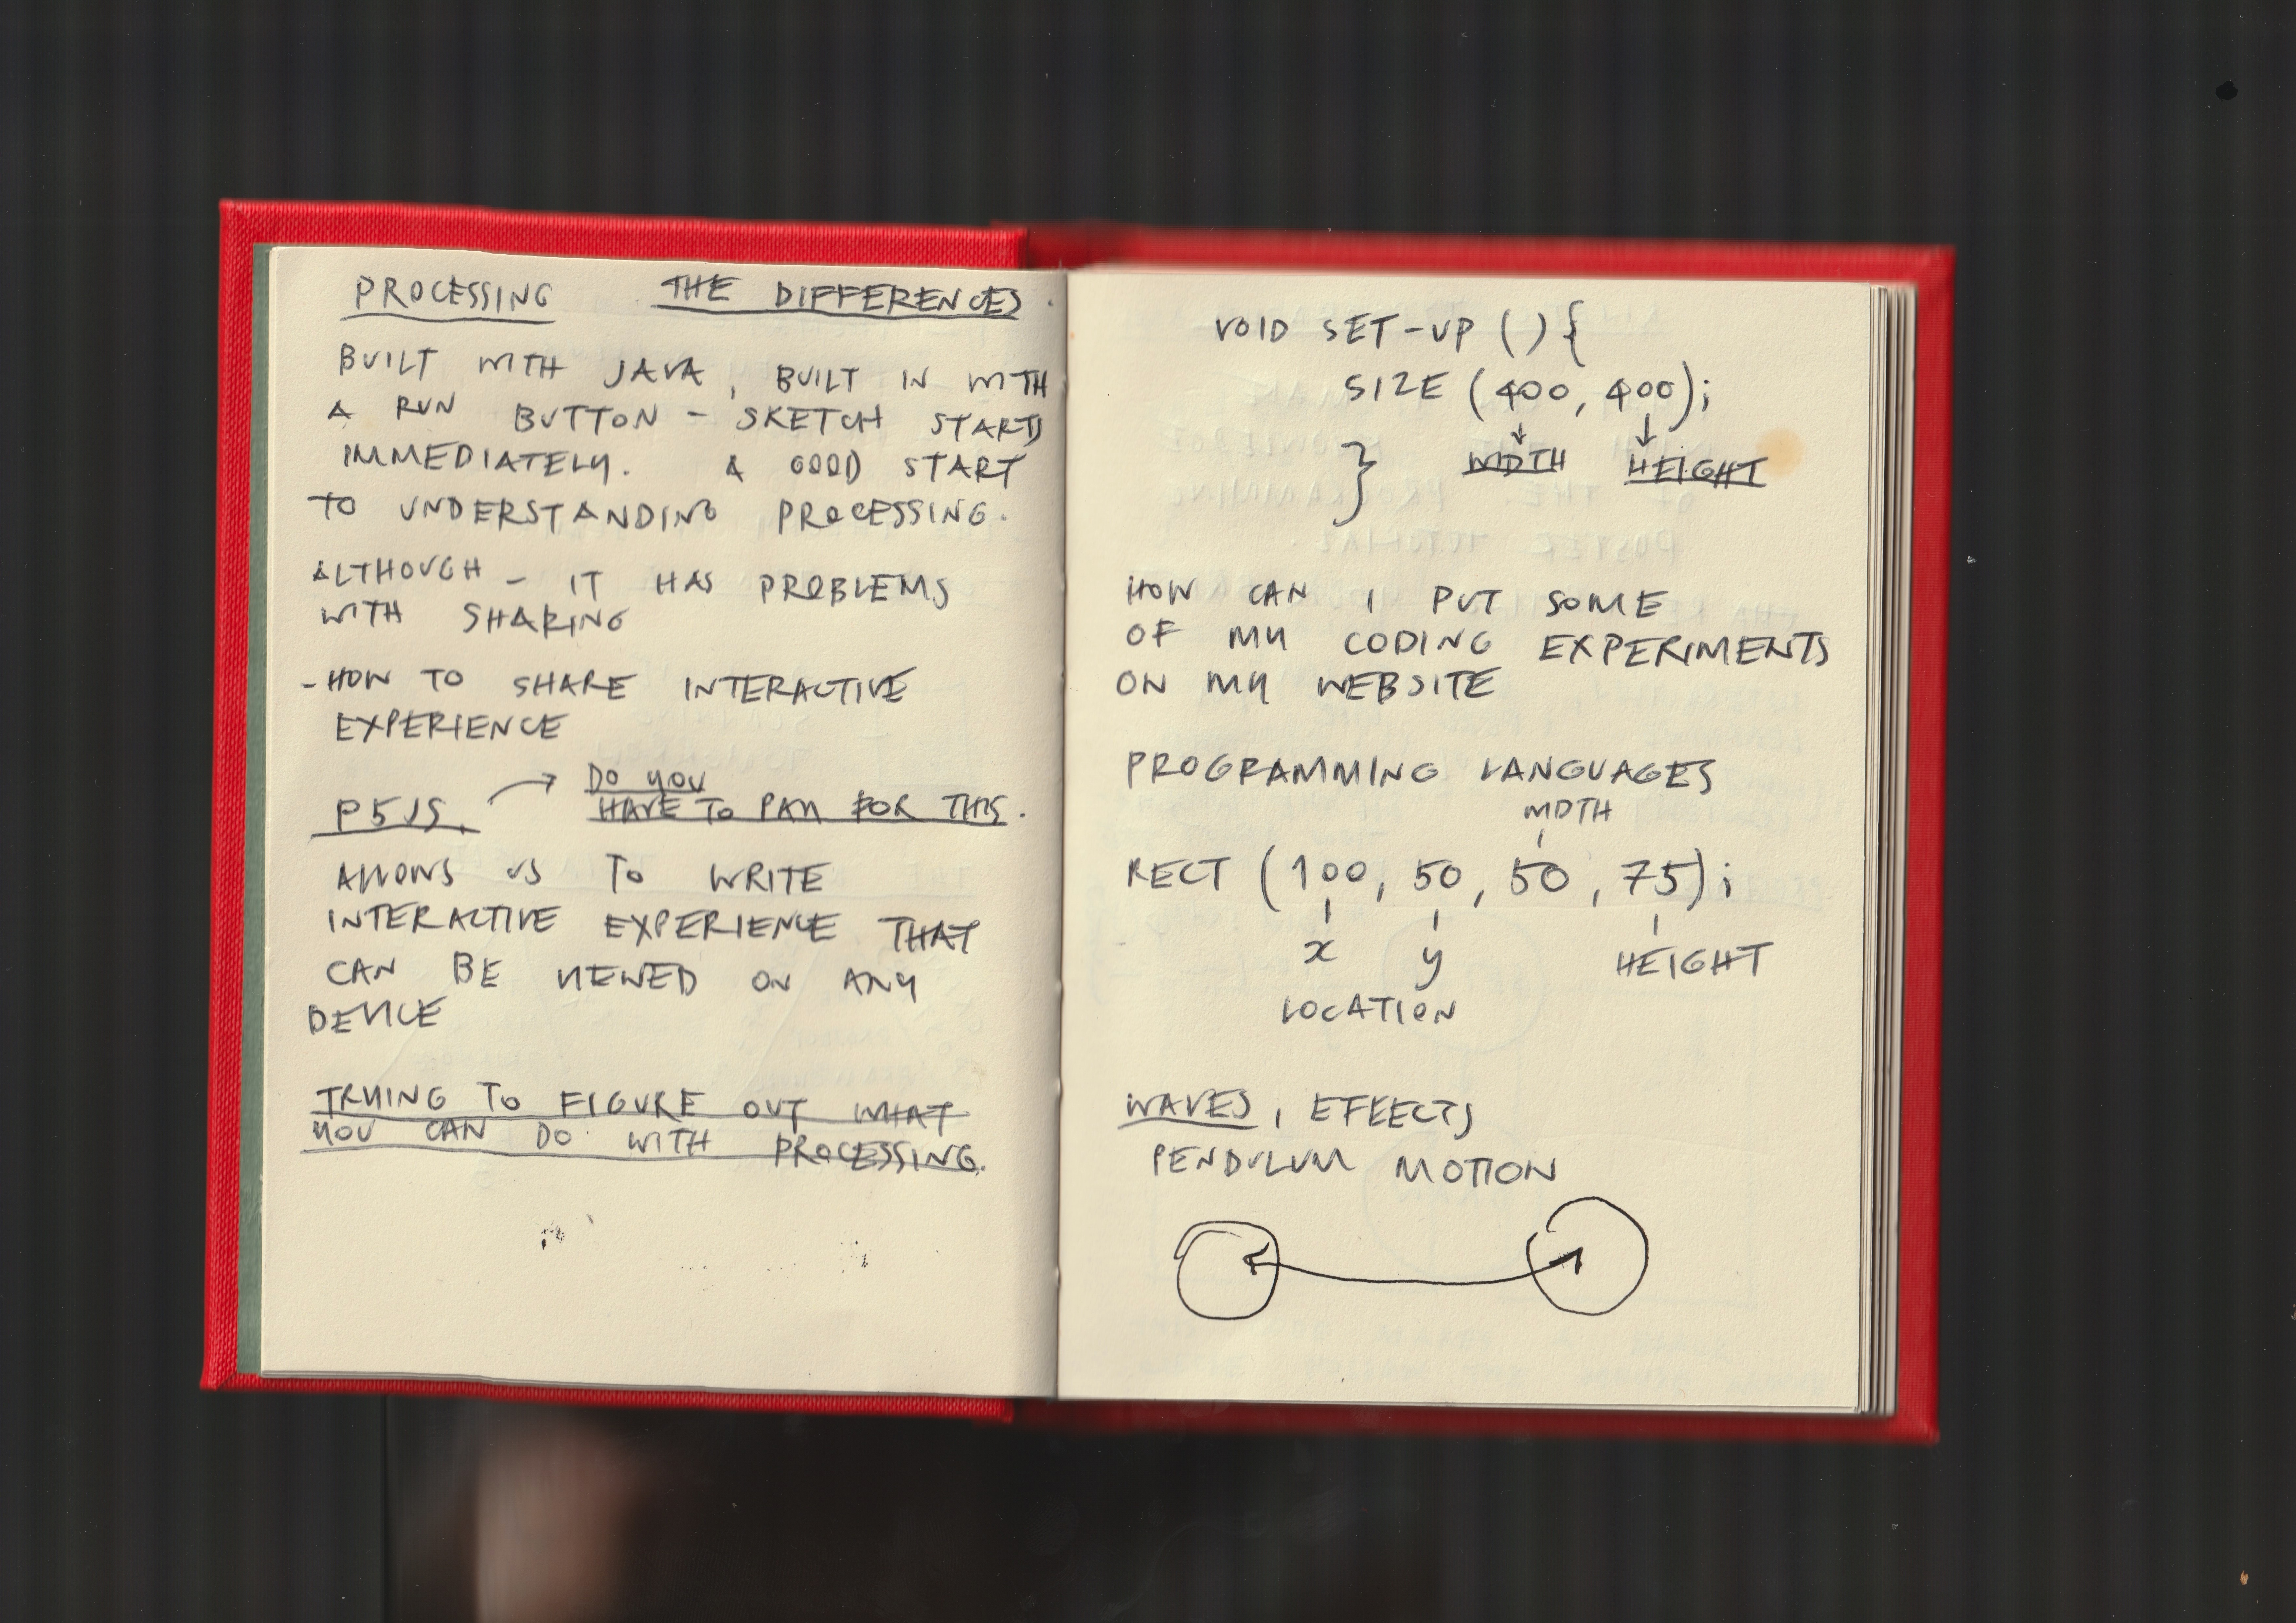 PROCESSING THE DIFFERENCES.
BUILT WITH JAVA, BUILT IN WITH
A RUN BUTTON - SKETCH STARTS
IMMEDIATELY. A GOOD START
TO UNDERSTANDING PROCESSING.
ALTHOUGH - IT HAS PROBLEMS
WITH SHARING
- HOW TO SHARE INTERACTIVE
EXPERIENCE
DO YOU
P5JS. → HAVE TO PAY FOR THIS.
ALLOWS US TO WRITE
INTERACTIVE EXPERIENCE THAT
CAN BE VIEWED ON ANY
DEVICE
TRYING TO FIGURE OUT WHAT
YOU CAN DO WITH PROCESSING.
VOID SET-UP () {
SIZE (400, 400);
} WIDTH HEIGHT
HOW CAN I PUT SOME
OF MY CODING EXPERIMENTS
ON MY WEBSITE
PROGRAMMING LANGUAGES
WIDTH
RECT (100, 50, 50, 75);
x y HEIGHT
LOCATION
WAVES, EFFECTS
PENDULUM MOTION